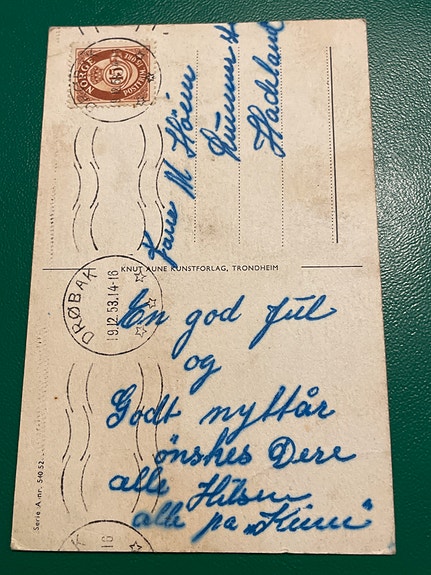 NORGE
15
POST
M Høien
Hadeland
KNUT AUNE KUNSTFORLAG, TRONDHEIM
DRØBAK
19.12.53.14-16
En god jul
og
Godt nyttår
ønskes Dere
alle Hilsen
alle på „
Serie A nr. 540 52